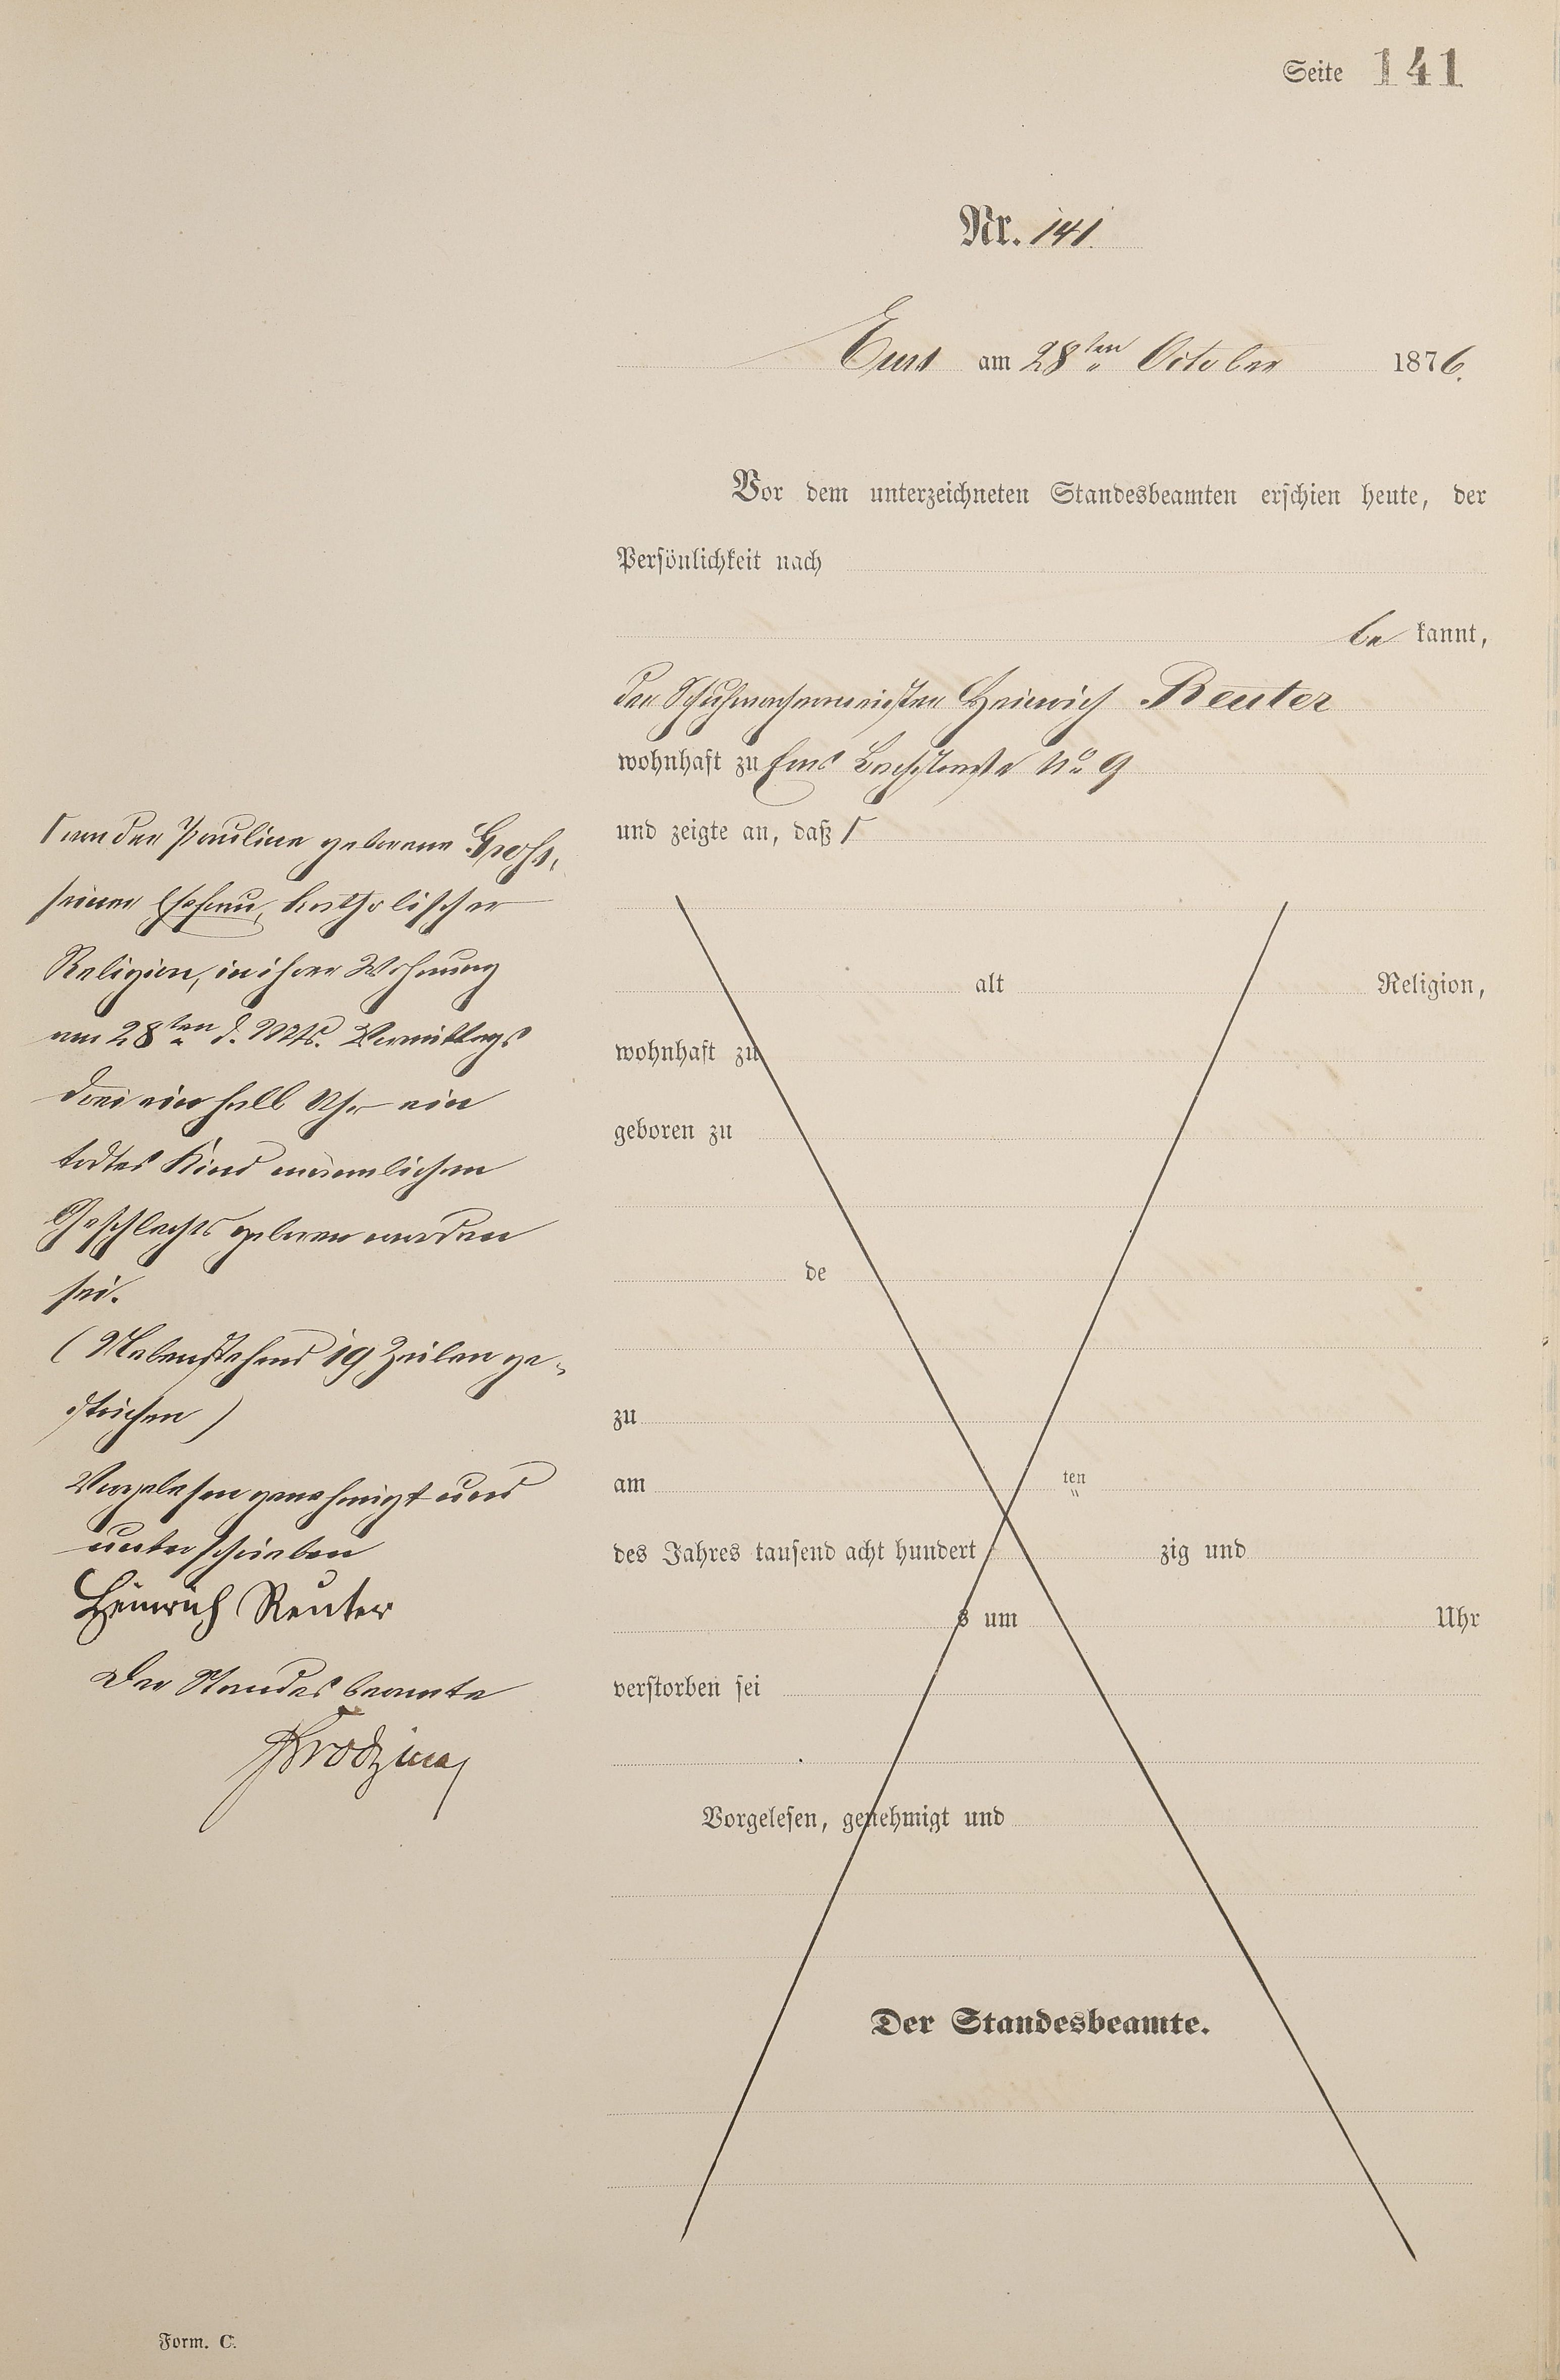 Seite 141
Nr. 141.
Ems am 28ten October 1876.
Vor dem unterzeichneten Standesbeamten erschien heute, der
Persönlichkeit nach
be kannt,
der Schuhmachermeister Heinrich Reuter
wohnhaft zu Ems Bachstraße No 9
und zeigte an, daß Γ
Γ von der Pauline geborene Groß,
seiner Ehefrau, katholischer
Religion, in ihrer Wohnung
am 28ten d. Mts. Vormittags
drei ein halb Uhr ein
todtes Kind männlichen
Geschlechts geboren worden
sei.
(Nebenstehend 19 Zeilen ge-
strichen)
Vorgelesen genehmigt und
unterschrieben
Heinrich Reuter
Der Standesbeamte
alt Religion,
wohnhaft zu
geboren zu
de
zu
am ten
des Jahres tausend acht hundert zig und
s um Uhr
verstorben sei
Vorgelesen, genehmigt und
Der Standesbeamte.
Form. C.